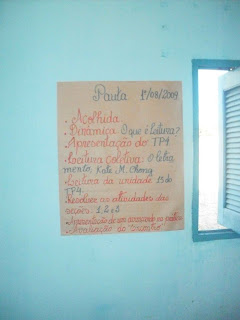 Pauta 1º/08/2009
• Acolhida
• Dinâmica: O que é leitura?
• Apresentação do TP4
• Leitura coletiva: O letra
mento, Kate M. Chong
• Leitura da unidade 15 do
TP4
• Resolver as atividades das
seções: 1, 2 e 3
• Apresentação de um avançando na prática
• Avaliação do "Encontro"